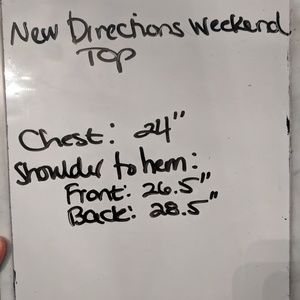 New Directions Weekend
Top
Chest: 24"
Shoulder to hem:
Front: 26.5"
Back: 28.5"